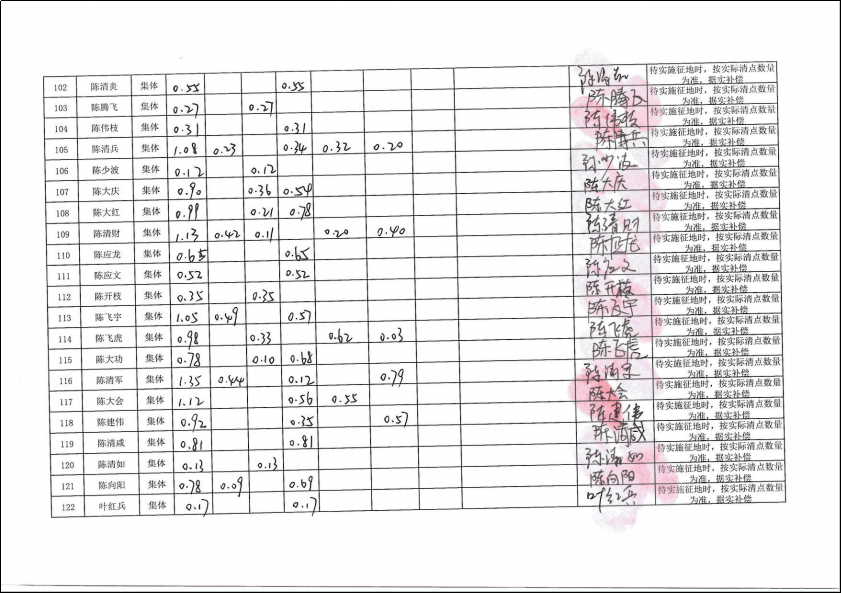 102 陈清炎 集体 0.55 0.55 待实施征地时，按实际清点数量
为准，据实补偿
103 陈腾飞 集体 0.27 0.27 陈腾飞 待实施征地时，按实际清点数量
为准，据实补偿
104 陈伟枝 集体 0.31 0.31 陈伟枝 待实施征地时，按实际清点数量
为准，据实补偿
105 陈清兵 集体 1.08 0.23 0.34 0.32 0.20 陈清兵 待实施征地时，按实际清点数量
为准，据实补偿
106 陈少波 集体 0.12 0.12 陈少波 待实施征地时，按实际清点数量
为准，据实补偿
107 陈大庆 集体 0.90 0.36 0.54 陈大庆 待实施征地时，按实际清点数量
为准，据实补偿
108 陈大红 集体 0.99 0.21 0.78 陈大红 待实施征地时，按实际清点数量
为准，据实补偿
109 陈清财 集体 1.13 0.42 0.11 0.20 0.40 陈清财 待实施征地时，按实际清点数量
为准，据实补偿
110 陈应龙 集体 0.65 0.65 待实施征地时，按实际清点数量
为准，据实补偿
111 陈应文 集体 0.52 0.52 陈应文 待实施征地时，按实际清点数量
为准，据实补偿
112 陈开枝 集体 0.35 0.35 陈开枝 待实施征地时，按实际清点数量
为准，据实补偿
113 陈飞宇 集体 1.05 0.49 0.57 陈飞宇 待实施征地时，按实际清点数量
为准，据实补偿
114 陈飞虎 集体 0.98 0.33 0.62 0.03 陈飞虎 待实施征地时，按实际清点数量
为准，据实补偿
115 陈大功 集体 0.78 0.10 0.68 陈飞虎 待实施征地时，按实际清点数量
为准，据实补偿
116 陈清军 集体 1.35 0.44 0.12 0.79 陈清军 待实施征地时，按实际清点数量
为准，据实补偿
117 陈大会 集体 1.12 0.56 0.55 陈大会 待实施征地时，按实际清点数量
为准，据实补偿
118 陈建伟 集体 0.92 0.35 0.57 陈建伟 待实施征地时，按实际清点数量
为准，据实补偿
119 陈清咸 集体 0.81 0.81 陈清咸 待实施征地时，按实际清点数量
为准，据实补偿
120 陈清如 集体 0.13 0.13 陈清如 待实施征地时，按实际清点数量
为准，据实补偿
121 陈向阳 集体 0.78 0.09 0.69 陈向阳 待实施征地时，按实际清点数量
为准，据实补偿
122 叶红兵 集体 0.17 0.17 叶红兵 待实施征地时，按实际清点数量
为准，据实补偿